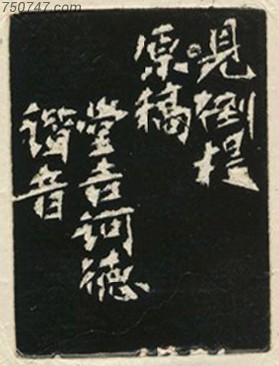 750747.com
見倒提
原稿
堂吉诃德
谐音